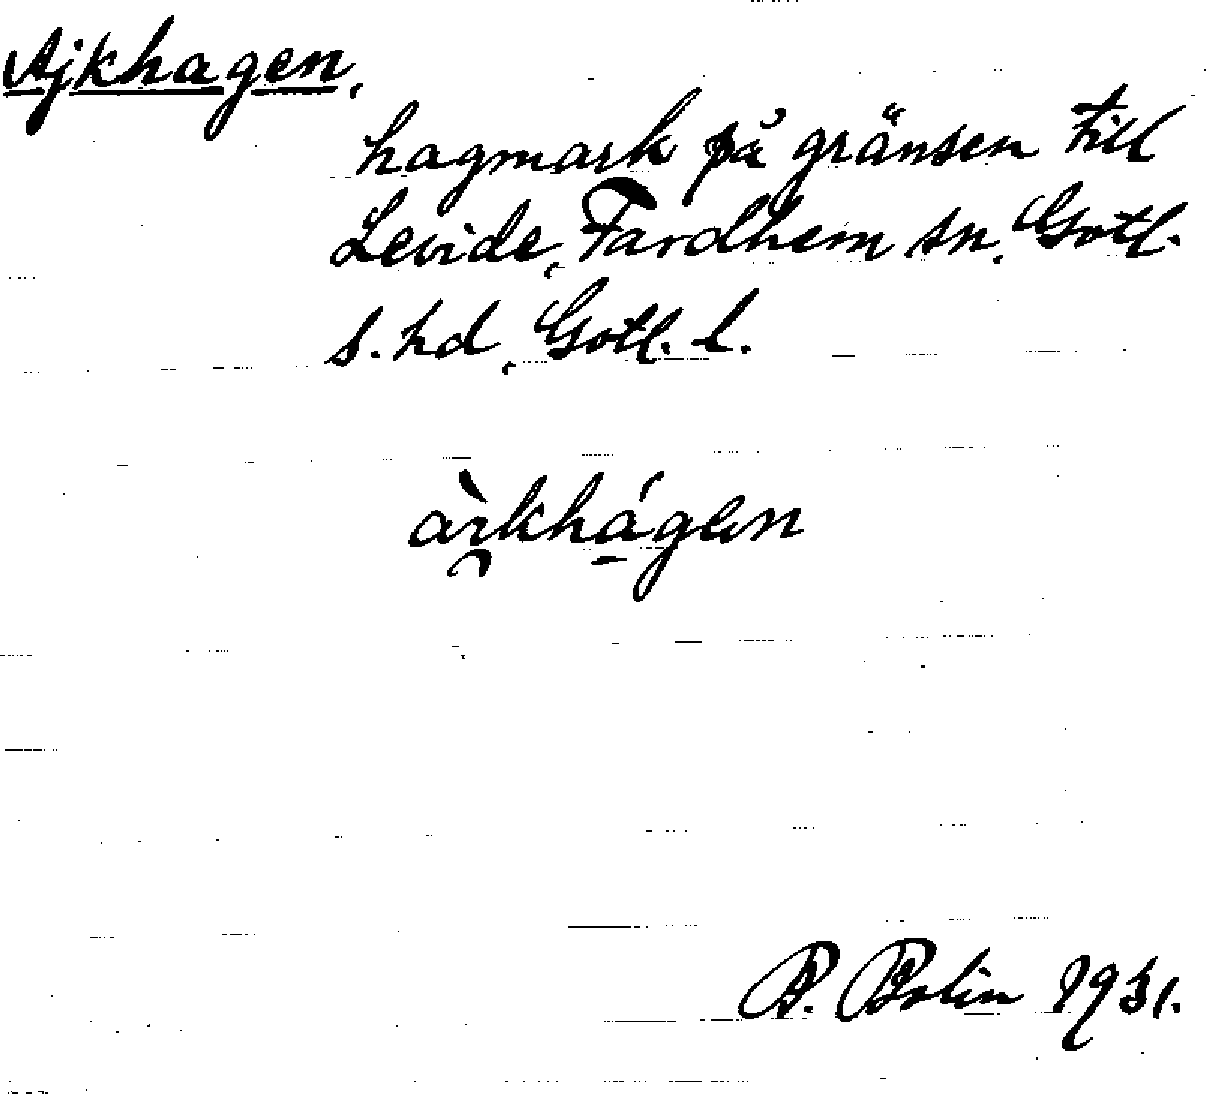 Ajkhagen,
hagmark på gränsen till
Levide, Fardhem sn, Gotl.
s. hd, Gotl. l.
àɪ̯khá̱gen
B. Bolin 1931.